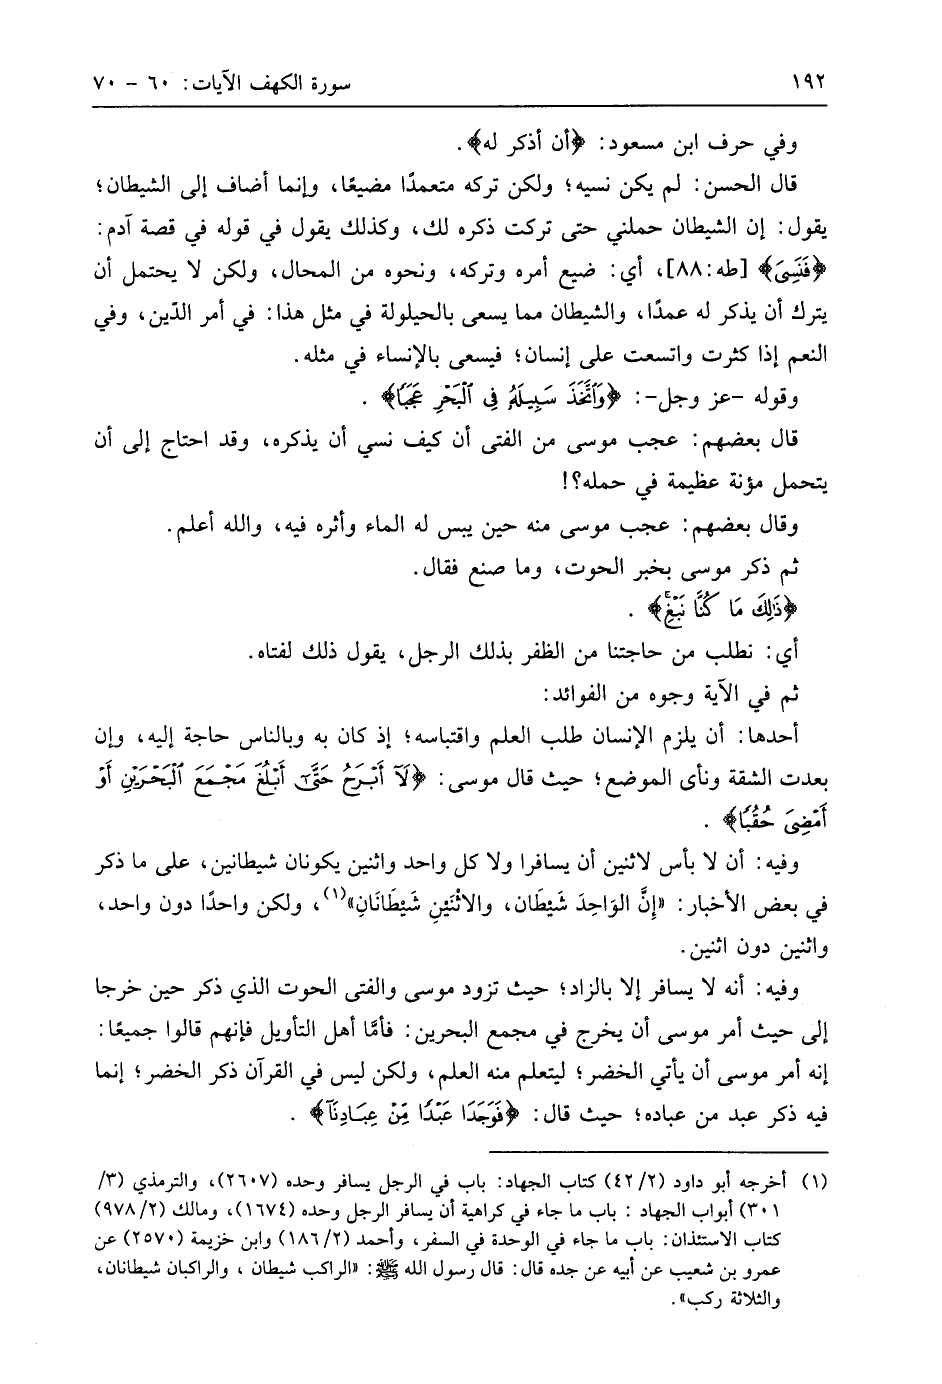 ١٩٢ سورة الكهف الآيات: ٦٠ - ٧٠
وفي حرف ابن مسعود: ﴿أن أذكر له﴾.
قال الحسن: لم يكن نسيه؛ ولكن تركه متعمدًا مضيعًا، وإنما أضاف إلى الشيطان؛
يقول: إن الشيطان حملني حتى تركت ذكره لك، وكذلك يقول في قوله في قصة آدم:
﴿فَنَسِىَ﴾ [طه:٨٨]، أي: ضيع أمره وتركه، ونحوه من المحال، ولكن لا يحتمل أن
يترك أن يذكر له عمدًا، والشيطان مما يسعى بالحيلولة في مثل هذا: في أمر الدّين، وفي
النعم إذا كثرت واتسعت على إنسان؛ فيسعى بالإنساء في مثله.
وقوله -عز وجل-: ﴿وَٱتَّخَذَ سَبِيلَهُۥ فِى ٱلْبَحْرِ عَجَبًا﴾ .
قال بعضهم: عجب موسى من الفتى أن كيف نسي أن يذكره، وقد احتاج إلى أن
يتحمل مؤنة عظيمة في حمله؟!
وقال بعضهم: عجب موسى منه حين يبس له الماء وأثره فيه، والله أعلم.
ثم ذكر موسى بخبر الحوت، وما صنع فقال.
﴿ذَٰلِكَ مَا كُنَّا نَبْغِ﴾ .
أي: نطلب من حاجتنا من الظفر بذلك الرجل، يقول ذلك لفتاه.
ثم في الآية وجوه من الفوائد:
أحدها: أن يلزم الإنسان طلب العلم واقتباسه؛ إذ كان به وبالناس حاجة إليه، وإن
بعدت الشقة ونأى الموضع؛ حيث قال موسى: ﴿لَآ أَبْرَحُ حَتَّىٰٓ أَبْلُغَ مَجْمَعَ ٱلْبَحْرَيْنِ أَوْ
أَمْضِىَ حُقُبًا﴾ .
وفيه: أن لا بأس لاثنين أن يسافرا ولا كل واحد واثنين يكونان شيطانين، على ما ذكر
في بعض الأخبار: «إِنَّ الوَاحِدَ شَيْطَان، والاثْنَيْنِ شَيْطَانَانِ»(١)، ولكن واحدًا دون واحد،
واثنين دون اثنين.
وفيه: أنه لا يسافر إلا بالزاد؛ حيث تزود موسى والفتى الحوت الذي ذكر حين خرجا
إلى حيث أمر موسى أن يخرج في مجمع البحرين: فأمَّا أهل التأويل فإنهم قالوا جميعًا:
إنه أمر موسى أن يأتي الخضر؛ ليتعلم منه العلم، ولكن ليس في القرآن ذكر الخضر؛ إنما
فيه ذكر عبد من عباده؛ حيث قال: ﴿فَوَجَدَا عَبْدًا مِّنْ عِبَادِنَآ﴾ .
(١) أخرجه أبو داود (٤٢/٢) كتاب الجهاد: باب في الرجل يسافر وحده (٢٦٠٧)، والترمذي (٣/
٣٠١) أبواب الجهاد : باب ما جاء في كراهية أن يسافر الرجل وحده (١٦٧٤)، ومالك (٩٧٨/٢)
كتاب الاستئذان: باب ما جاء في الوحدة في السفر، وأحمد (١٨٦/٢) وابن خزيمة (٢٥٧٠) عن
عمرو بن شعيب عن أبيه عن جده قال: قال رسول الله ﷺ: «الراكب شيطان ، والراكبان شيطانان،
والثلاثة ركب».